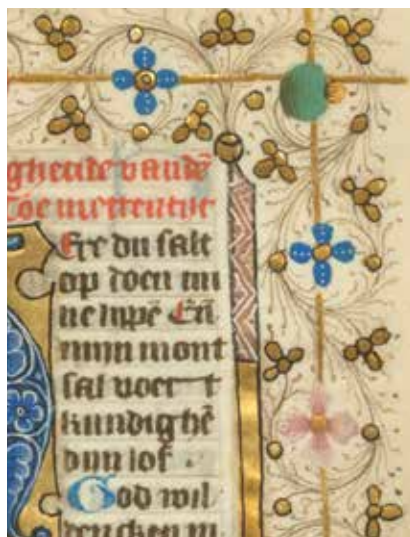 ghetide vandē
Toe mettentijt
Ere du salt
op doen mi
ne lippē Eñ
mijn mont
sal voert
kundighē
dijn lof .
God wil
dencken